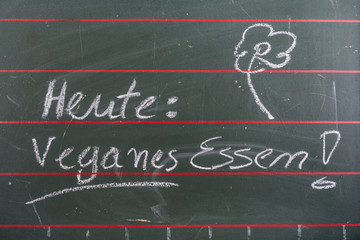 Heute:
Veganes Essen!